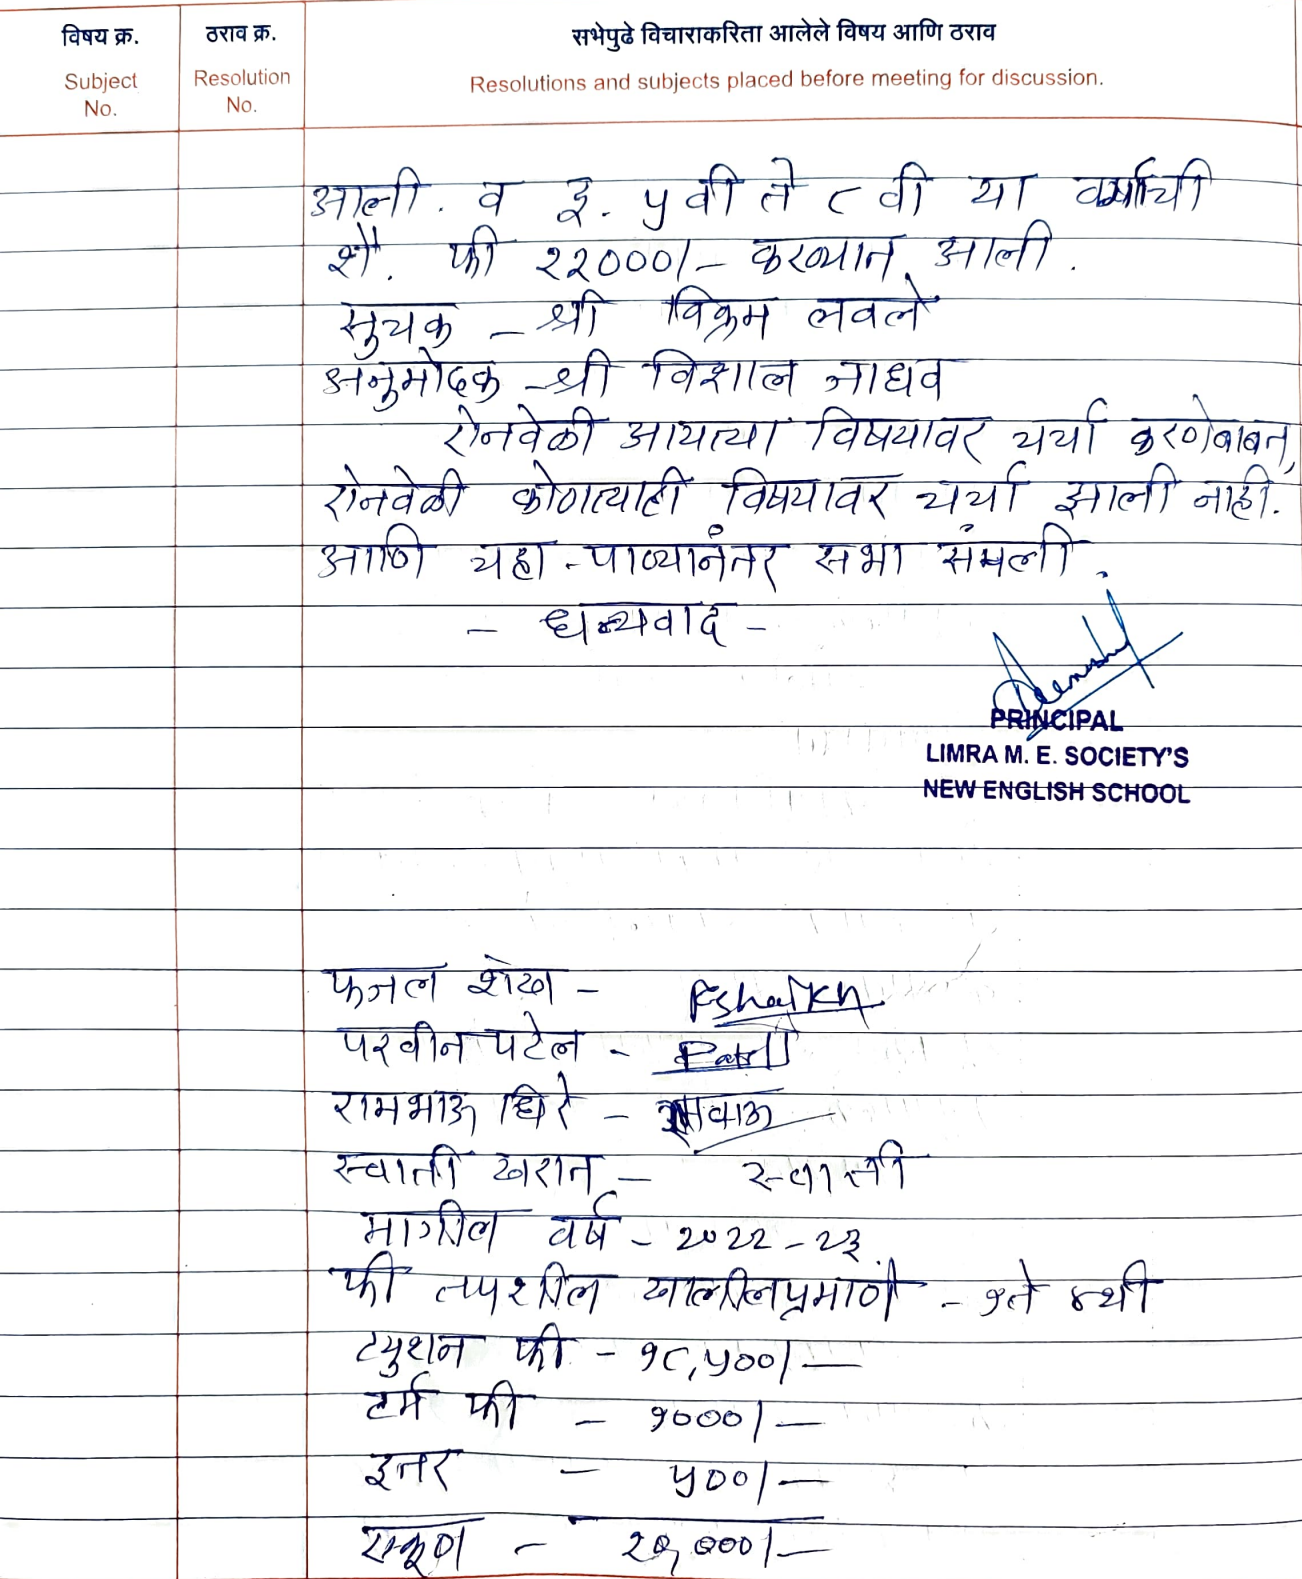 विषय क्र. ठराव क्र. सभेपुढे विचाराकरिता आलेले विषय आणि ठराव
Subject No. Resolution No. Resolutions and subjects placed before meeting for discussion.
आली. व इ. ५ वी ते ८ वी या वर्षाची
शै. फी २२०००/- करण्यात आली.
सुचक - श्री विक्रम लवले
अनुमोदक - श्री विशाल जाधव
ऐनवेळी आयत्या विषयावर चर्चा करणेबाबत,
ऐनवेळी कोणत्याही विषयावर चर्चा झाली नाही.
आणि चहा-पाण्यानंतर सभा संपली.
- धन्यवाद -
PRINCIPAL
LIMRA M. E. SOCIETY'S
NEW ENGLISH SCHOOL
फजल शेख - FShaikh
परवीन पटेल - Patel
रामभाऊ घिरे -
स्वाती खरात - स्वाती
मागील वर्ष - २०२२-२३
फी तपशील खालीलप्रमाणे - १ते ४थी
ट्युशन फी - १८,५००/-
टर्म फी - १०००/-
इतर - ५००/-
एकूण - २०,०००/-